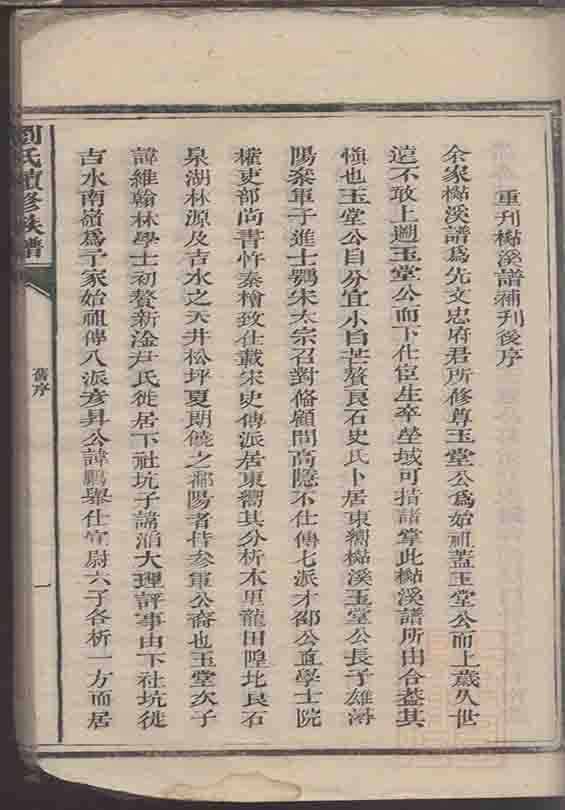 重刊楓溪譜補刊後序
余家楓溪譜爲先文忠府君所修尊玉堂公爲始祖蓋玉堂公而上歲久世
遠不敢上遡玉堂公而下仕宦生卒塋域可指諸掌此楓溪譜所由合葢其
愼也玉堂公自分宜小白芒贅良石史氏卜居東衝楓溪玉堂公長子雄潯
陽叅軍子進士鶚宋太宗召對偹顧問高隱不仕傳七派才邵公直學士院
權吏部尚書忤秦檜致仕載宋史傳派居東衝其分析本里龍田隍北良石
泉湖林源及吉水之天井松坪夏朗饒之鄱陽者皆參軍公裔也玉堂次子
諱維翰林學士初贅新淦尹氏徙居下社坑子諱 大理評事由下社坑徙
吉水南嶺爲予家始祖傳八派彥昇公諱鵬舉仕 尉六子各析一方而居
劉氏續修族譜
舊序
一